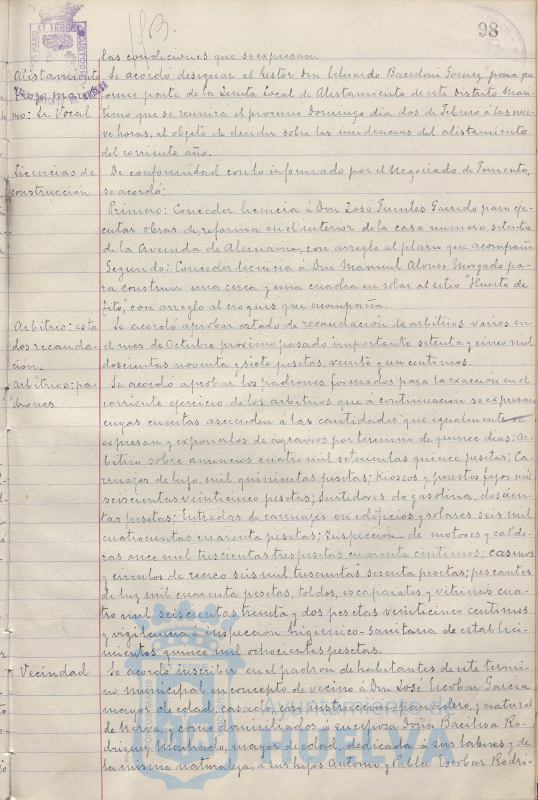 98
las condiciones que se expresan.
Alistamiento Se acordó designar al Gestor Don Eduardo Gomez para que
forme parte de la Junta Local de Alistamiento de este Distrito Marí-
mo: Sr. Vocal timo que se reunirá el proximo Domingo dia dos de Febrero á las nue-
ve horas, al objeto de decidir sobre las incidencias del alistamiento
del corriente año.
Licencias de De conformidad con lo informado por el Negociado de Fomento,
construccion se acordó:
Primero: Conceder licencia á Don José Fuentes Garrido para eje-
cutar obras de reforma en el interior de la casa numero setenta
de la Avenida de Alemania, con arreglo al plano que acompaña
Segundo: Conceder licencia á Don Manuel Alonso Morgado pa-
ra construir una cerca y una cuadra en solar al sitio "Huerto de
Tito", con arreglo al croquis que acompaña.
Arbitrio: esta Se acordó aprobar estado de recaudación de arbitrios varios en
dos recauda- el mes de Octubre próximo pasado importante setenta y cinco mil
ción.- doscientas noventa y siete pesetas, veinte y un centimos.
Arbitrios: pa- Se acordó aprobar los padrones formados para la exacción en el
drones. corriente ejercicio de los arbitrios que á continuacion se expresan
cuyas cuentas ascienden á las cantidades que igualmente se
expresan y exponerlos de agravios por termino de quince dias: Ar-
bitrio sobre anuncios cuatro mil setecientas quince pesetas; Ca-
rruajes de lujo, mil quinientas pesetas; Kioscos y puestos fijos mil
seiscientas veinticinco pesetas; Surtidores de gasolina, doscien-
tas pesetas; Entradas de carruajes en edificios y solares seis mil
cuatrocientas cuarenta pesetas; Inspección de motores y calde-
ras once mil trescientas tres pesetas cuarenta centimos; casinos
y circulos de recreo seis mil trescientas sesenta pesetas; pescantes
de luz mil cuarenta pesetas, toldos, escaparates y vitrinas cua-
tro mil seiscientas treinta y dos pesetas veinticinco centimos
y vigilancia é inspeccion higienico-sanitaria de estableci-
mientos quince mil ochocientas pesetas.
Vecindad Se acordó inscribir en el padrón de habitantes de este termi-
no municipal en concepto de vecino á Don José Escobar Garcia
mayor de edad, casado, con instruccion, panadero, y natural
de Nerva, y como domiciliados á su esposa Doña Basilisa Ro-
driguez Machado, mayor de edad, dedicada á sus labores y de
la misma naturaleza, á sus hijos Antonio y Pablo Escobar Rodri-
HUELVA